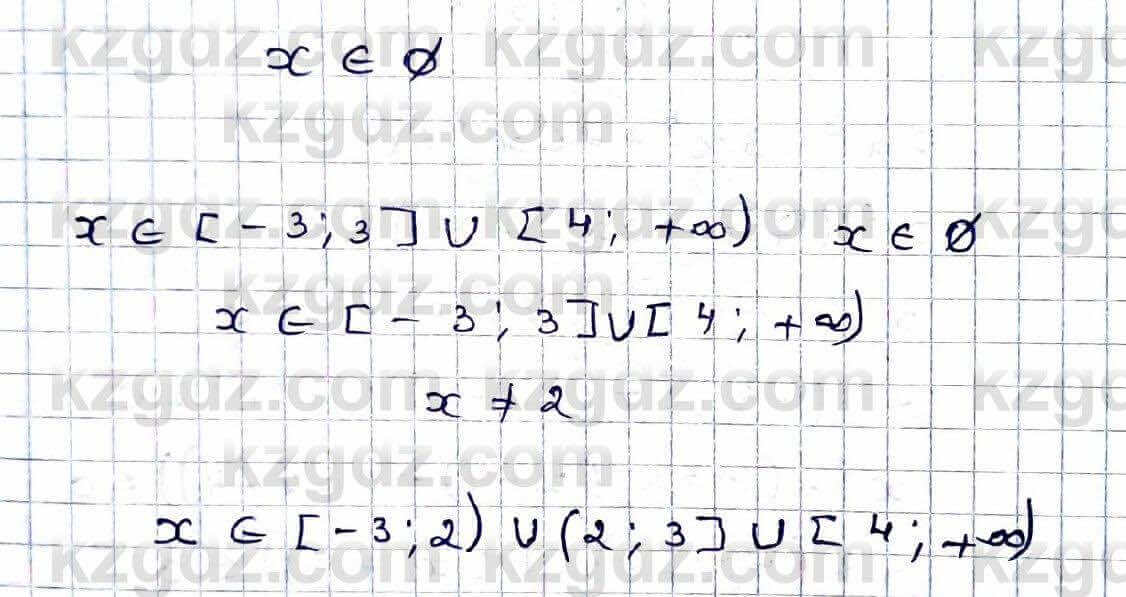 x ∈ ∅
x ∈ [-3; 3] ∪ [4; +∞) x ∈ ∅
x ∈ [-3; 3] ∪ [4; +∞)
x ≠ 2
x ∈ [-3; 2) ∪ (2; 3] ∪ [4; +∞)
kzgdz.com kzgdz.com kzgd
kzgdz.com
kzgdz.com kzgdz.com kzgd
kzgdz.com
kzgdz.com kzgdz.com kzgd
kzgdz.com
kzgdz.com kzgdz.com kzgd